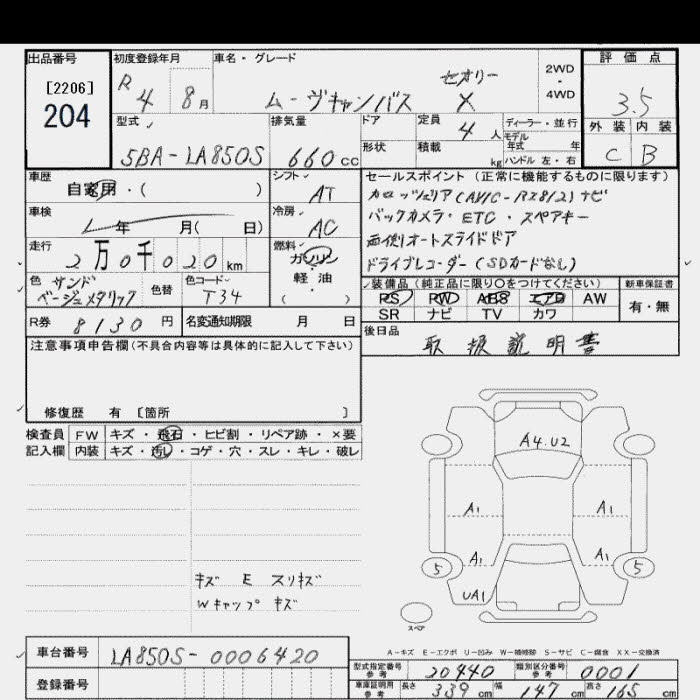 出品番号
[2206]
204
初度登録年月
R 4 8月
車名・グレード
セオリー
ムーヴキャンバス X
2WD
・
4WD
評価点
3.5
外装 内装
C B
型式
5BA-LA850S
排気量
660 cc
ドア
形状
定員 4 人
積載 kg
ディーラー・並行
モデル
年式 年
ハンドル 左・右
車歴
自家用・( )
シフト
AT
車検
年 月( 日)
冷房
AC
走行
2万0千020km
燃料
ガソリン
・
軽油
( )
色 サンドベージュメタリック
色替
色コード
T34
R券 8130 円
名変通知期限 月 日
セールスポイント (正常に機能するものに限ります)
カロッツェリア(AVIC-RZ812)ナビ
バックカメラ・ETC・スペアキー
両側オートスライドドア
ドライブレコーダー(SDカードなし)
装備品(純正品に限り○をつけてください)
新車保証書
PS PW ABS エアB AW
SR ナビ TV カワ
有・無
後日品
取扱説明書
注意事項申告欄(不具合内容等は具体的に記入して下さい)
修復歴 有 [箇所 ]
検査員
記入欄
FW キズ・飛石・ヒビ割・リペア跡・×要
内装 キズ・汚れ・コゲ・穴・スレ・キレ・破レ
キズ E スリキズ
Wキャップ キズ
A4.U2
A1 A1
A1 A1
5 5
UA1
スペア
A-キズ E-エクボ U-凹み W-補修跡 S-サビ C-腐食 XX-交換済
車台番号 LA850S-0006420
登録番号
型式指定番号
参考
20440
類別区分番号
参考
0001
車庫証明用
参考
長さ 339 cm 幅 147 cm 高さ 165 cm